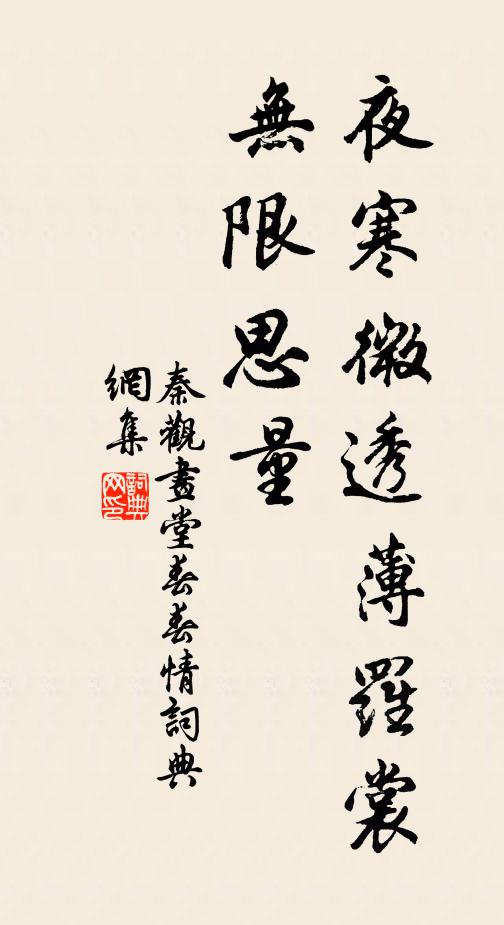 夜寒微透薄羅裳
無限思量
秦觀畫堂春春情詞典
網集
詞典
网印